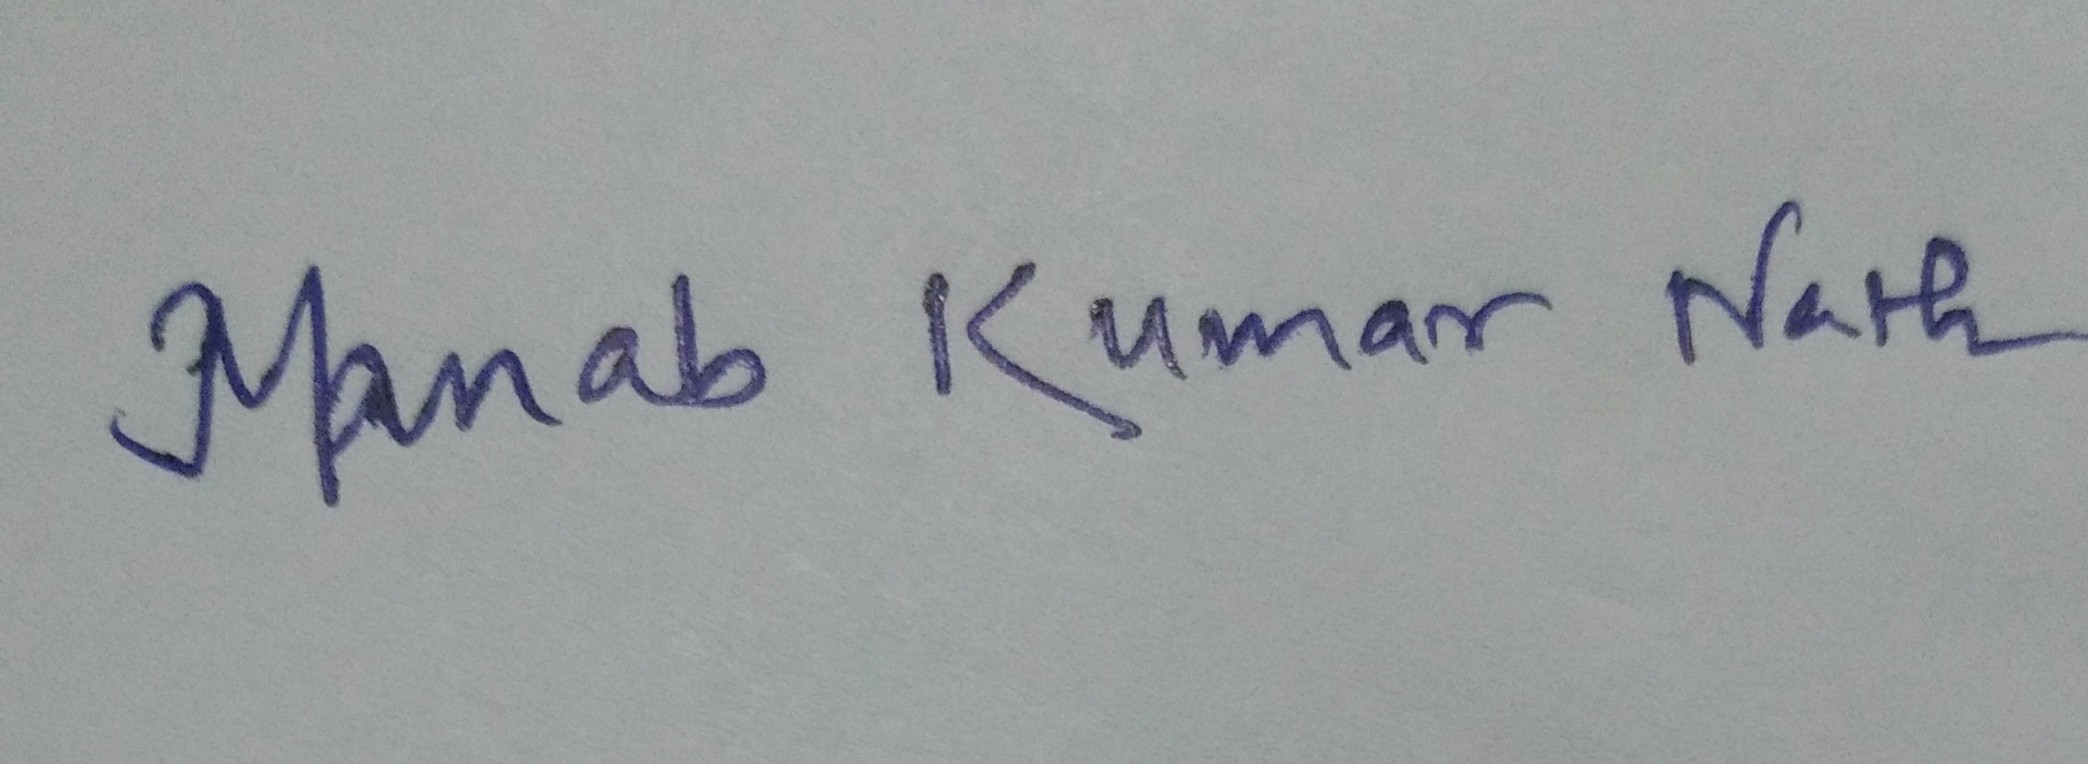 Manab Kumar Nath